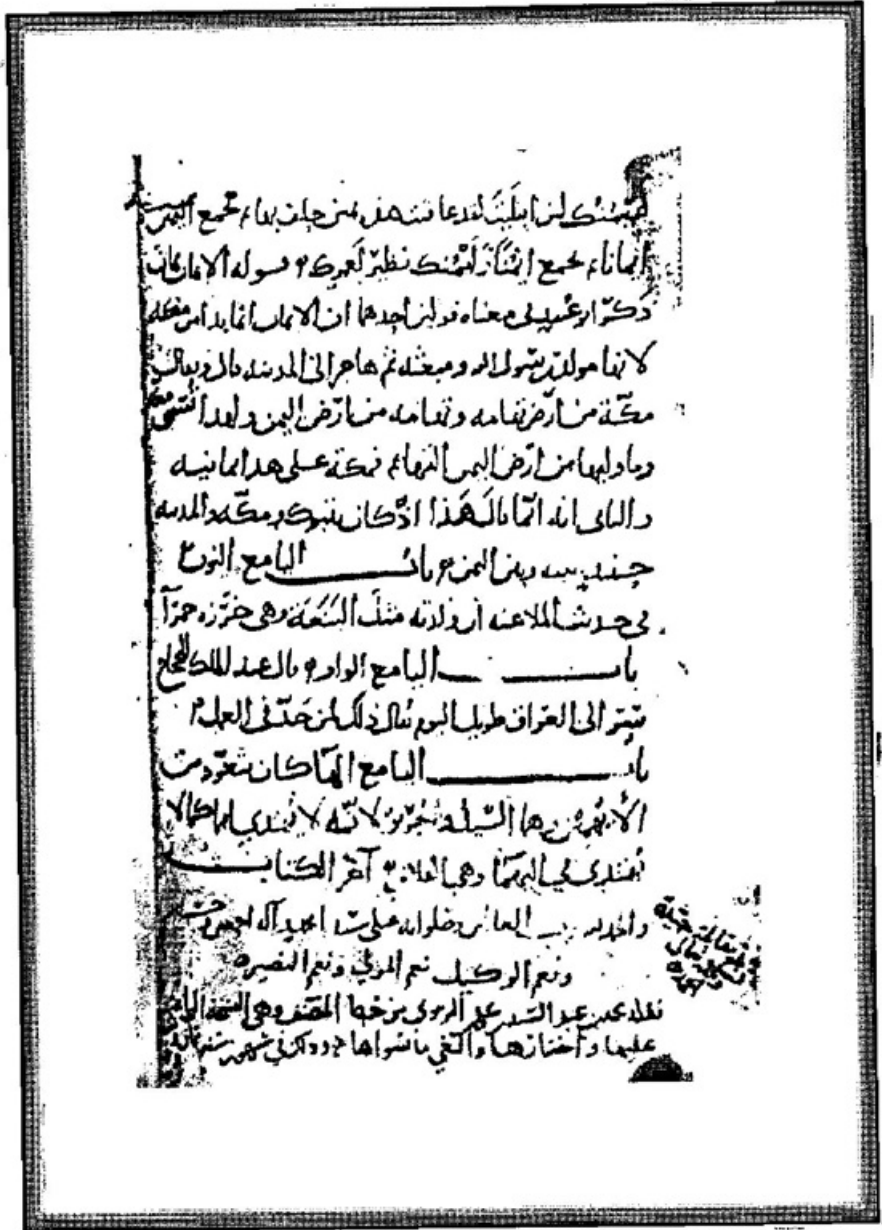 ليمنك لئن ابتليت لقد عافيت هذه يمين حلف بها ثم تجمع اليمين
ايمانا ثم تجمع ايمنا فليمنك نظير لعمرك قوله الايمان يمان
ذكر ابو عبيد في معناه قولين احدهما ان الايمان انما بدا من مكة
لانها مولد رسول الله ومبعثه ثم هاجر الى المدينة قال ويقال
مكّة من ارض تهامه وتهامه من ارض اليمن ولهذا تسمى مكة
وما وليها من ارض اليمن التهايم فمكة على هذا يمانيه
والثاني انه انما قال هذا اذ كان بتبوك ومكّة والمدينه
حينيذ بينه وبين اليمن باب اليا مع النون
في حديث الملاعنه ان ولدته مثل الينعة وهي خرزه حمرآ
باب اليا مع الواو قال عبد الملك للحجاج
سر الى العراق طويل اليوم يقال ذلك لمن جدّ في العمل
باب اليا مع الهآ كان يتعوّذ من
الايهمين وهما السيل والحريق لانّه لا يهتدي لهما كما لا
يهتدى في اليهمآ وهي الفلاة آخر الكتاب
والحمد لله رب العالمين وصلواته على سيدنا محمد وآله اجمعين وحسبنا
ونعم الوكيل نعم المولى ونعم النصير
نقله محمد بن عبد السيد بن علي من خط المصنف وهي النسخة التي
عليها واختارها وألغي ما سواها وذلك في شهور سنة